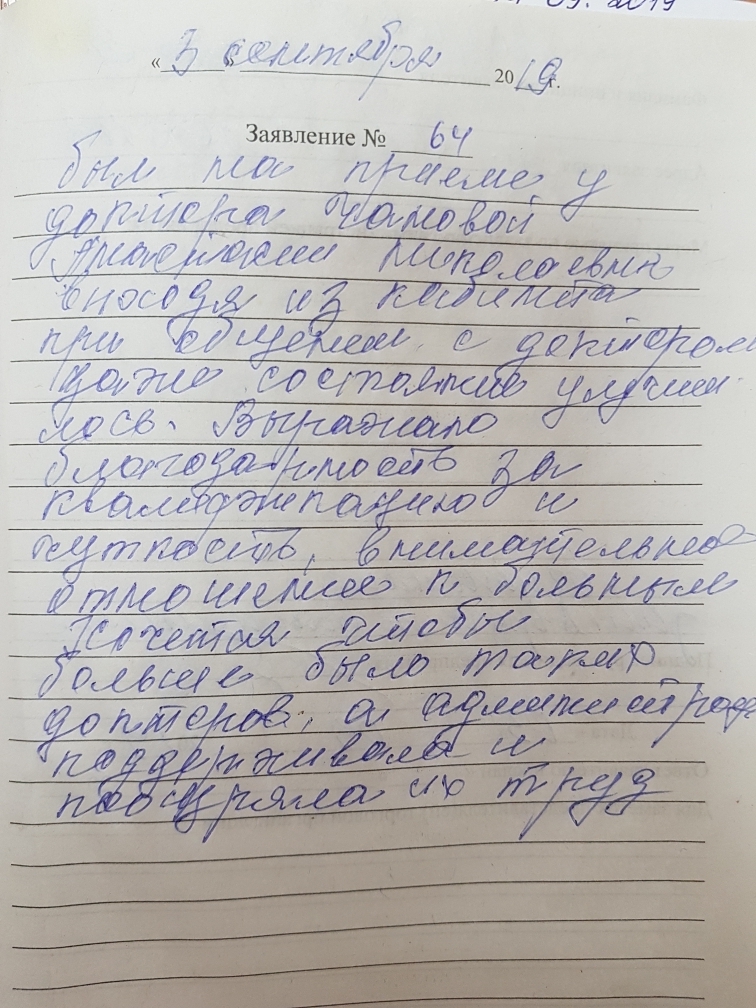 09. 2019
« 3 » сентября 2019 г.
Заявление № 64
был на приеме у
доктора Чамовой
Анастасии Николаевны
выходя из кабинета
при общении с доктором
даже состояние улучши
лось. Выражаю
благодарность за
квалификацию и
чуткость, внимательное
отношение к больным
Хочется чтобы
больше было таких
докторов, а
поддерживала и
поощряла их труд